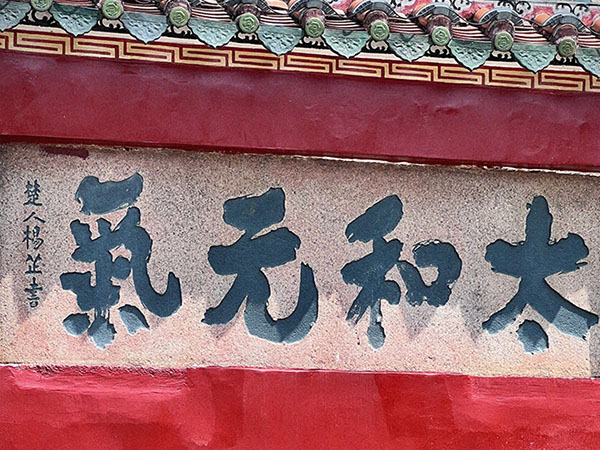 太和元氣
楚人楊芷書